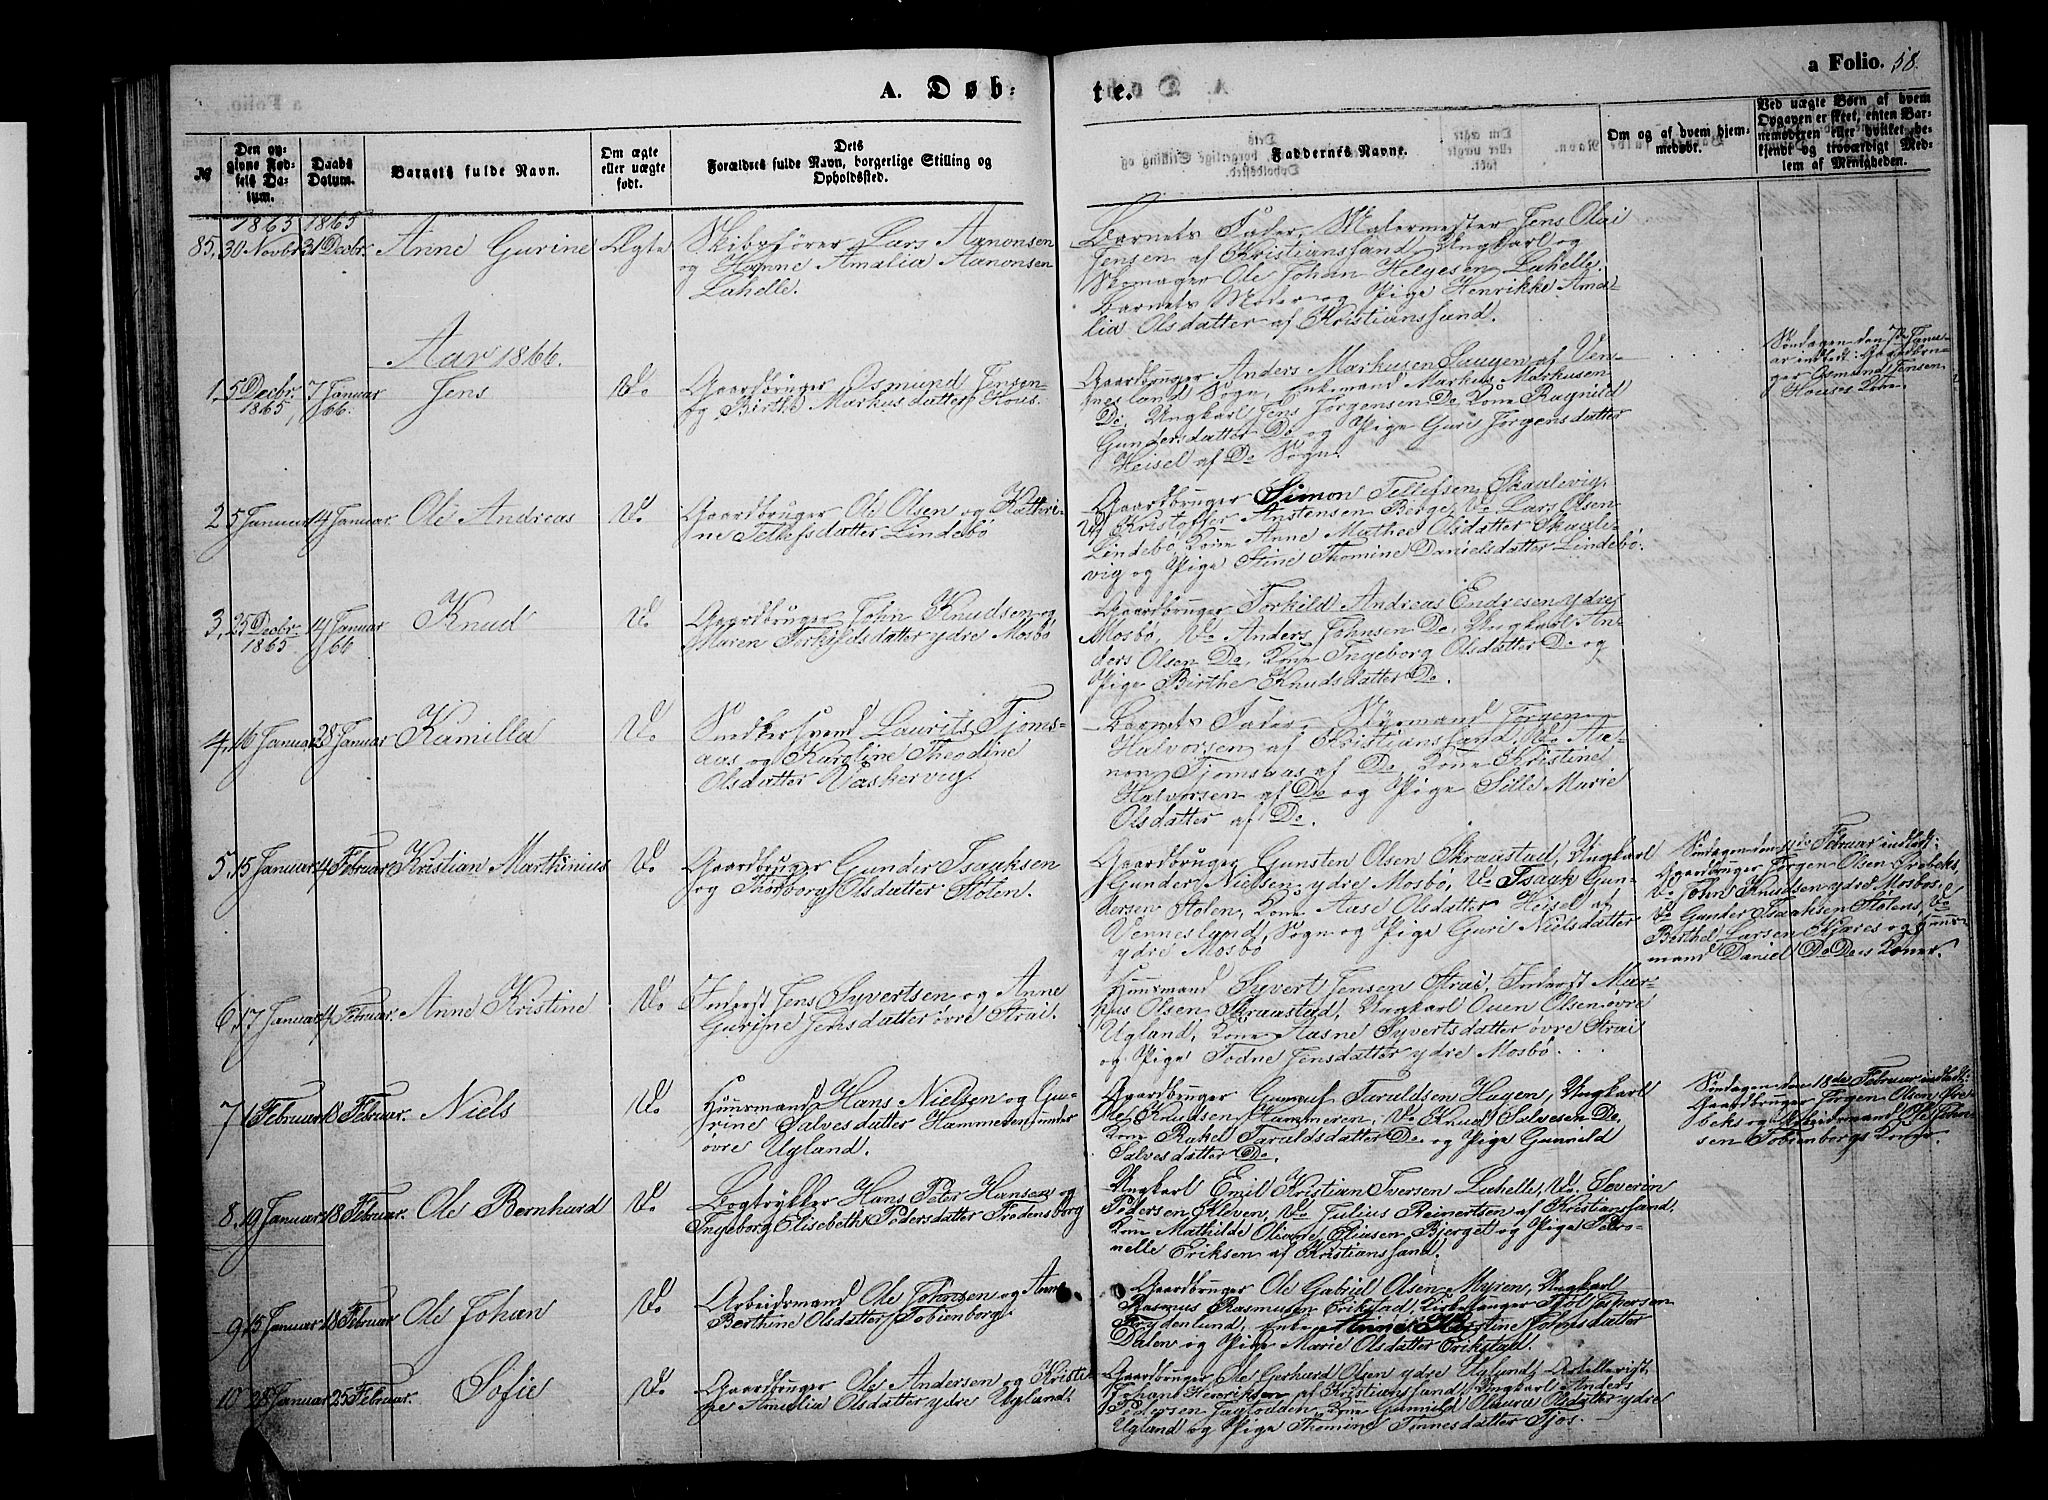 A. Døb-
te.
a Folio. 58.
№
Den opgivne Fødsels Datum.
Daabs Datum.
Barnets fulde Navn.
Om ægte eller uægte født.
Dets Forældres fulde Navn, borgerlige Stilling og Opholdssted.
Faddernes Navne.
Om og af hvem hjemmedøbt.
Ved uægte Børn af hvem Opgaven er skeet, enten Barnemoderen eller hvilket bekjendt og troværdigt Medlem af Menigheden.
1865 1865
85, 30 Novbr 31 Decbr. Anne Gurine Ægte
Skibsfører Lars Aanonsen
og Hanne Amalia Aanonsen
Lahelle.
Barnets Fader, Malermester Jens Olai
Jensen af Kristianssand, Ungkarl og
Skomager Ole Johan Helgesen Lahelle,
Barnets Moder og Pige Henrikke Ama-
lia Olsdatter af Kristianssand.
Aar 1866.
1, 5 Decbr. 1865 7 Januar 66. Jens Do
Gaardbruger Osmund Jensen
og Birthe Markusdatter Hous.
Gaardbruger Anders Markusen Haugen af Ven-
nesland Sogn, Enkemand Markus Markusen
Do, Ungkarl Jens Jørgensen Do Kone Ragnild
Gundersdatter Do og Pige Guri Jørgensdatter
Heisel af Do Sogn.
Søndagen den 7de Janu-
ar indledt: Gaardbru-
ger Osmund Jensen
Houses Kone.
2 5 Januar 14 Januar. Ole Andreas Do
Gaardbruger Ole Olsen og Kathri-
ne Tellefsdatter Lindebø
Gaardbruger Simon Tellefsen Skaalevig,
Do Kristoffer Anstensen Berge, Do Lars Olsen
Lindebø, Kone Anne Mathea Olsdatter Skaale-
vig og Pige Stine Thomine Danielsdatter Lindebø.
3, 25 Decbr. 1865 14 Januar 66 Knud Do
Gaardbruger John Knudsen og
Maren Terkjelsdatter ydre Mosbø
Gaardbruger Torkild Andreas Endresen ydre
Mosbø, Do Anders Johnsen Do, Ungkarl An-
ders Olsen Do, Kone Ingeborg Olsdatter Do og
Pige Birthe Knudsdatter Do.
4, 16 Januar 28 Januar Kamilla Do
Snedkersvend Laurits Tjoms-
aas og Karoline Theodine
Olsdatter Vaskervig.
Barnets Fader, Styrmand Jørgen
Halvorsen af Kristianssand, Do Aa-
non Tjomsaas af Do, Kone Kristine
Halvorsen af Do og Pige Sille Marie
Olsdatter af Do.
5, 15 Januar 4 Februar Kristian Marthinius Do
Gaardbruger Gunder Isaaksen
og Thorborg Olsdatter Stølen.
Gaardbruger Gunsten Olsen Skraastad, Ungkarl
Gunder Nielsen ydre Mosbø, Do Isaak Gun-
dersen Stølen, Kone Aase Olsdatter Heisel af
Vennesland Sogn og Pige Guri Nielsdatter
ydre Mosbø
Søndagen den 4de Februar indledt:
Gaardbruger Jørgen Olsen Drøbeks
Do John Knudsen ydre Mosbøs,
Do Gunder Isaaksen Stølens, Do
Berthel Larsen Kjæres og Huus-
mand Daniel Do Do's Koner.
6, 17 Januar 4 Februar. Anne Kristine Do
Inderst Jens Syvertsen og Anne
Gurine Jensdatter øvre Strai.
Huusmand Syvert Jensen Strai, Inderst Mar-
kus Olsen Skraastad, Ungkarl Ouen Olsen øvre
Ugland, Kone Aasne Syvertsdatter øvre Strai
og Pige Todne Jensdatter ydre Mosbø.
7 1 Februar 18 Februar. Niels Do
Huusmand Hans Nielsen og Gu-
rine Salvesdatter Hammeren under
øvre Ugland.
Gaardbruger Gunuf Taraldsen Hagen, Ungkarl
Ole Knudsen Hammeren, Do Knud Salvesen Do,
Kone Rakel Taraldsdatter Do og Pige Gunnild
Salvesdatter Do.
Søndagen den 18de Februar indledt:
Gaardbruger Jørgen Olsen Drø-
beks og Arbeidsmand Ole John-
sen Tobienborgs Koner.
8, 19 Januar 18 Februar. Ole Bernhard Do
Bogtrykker Hans Peter Hansen og
Ingeborg Elisebeth Pedersdatter Fredensborg
Ungkarl Emil Kristian Iversen Lahelle, Do. Severin
Pedersen Kleven, Do Julius Reinertsen af Kristianssand,
Kone Mathilde Oliane Eliasen Bjerget og Pige Petro-
nelle Eriksen af Kristianssand.
9 15 Januar 18 Februar Ole Johan Do
Arbeidsmand Ole Johnsen og Anne
Berthine Olsdatter Tobienborg.
Gaardbruger Ole Gabriel Olsen Myren, Ungkarl
Rasmus Rasmusen Erikstad, Kirkesanger Tjøl Jespersen
Frydenlund, Enke Anne Kirstine Tomsdatter
Dalen og Pige Marie Olsdatter Erikstad.
10 28 Januar 25 Februar. Sofie Do
Gaardbruger Ole Andersen og Kristi-
ne Amalia Olsdatter ydre Ugland.
Gaardbruger Ole Gerhard Olsen ydre Ugland,
Johans Henriksen af Kristianssand, Ungkarl Anders
Pedersen Jagtodden, Kone Gunnild Olaura Olsdatter ydre
Ugland og Pige Thomine Tinnesdatter Tjos.